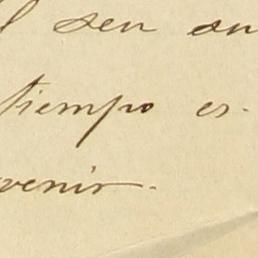 seu
tiempo es-
venir.